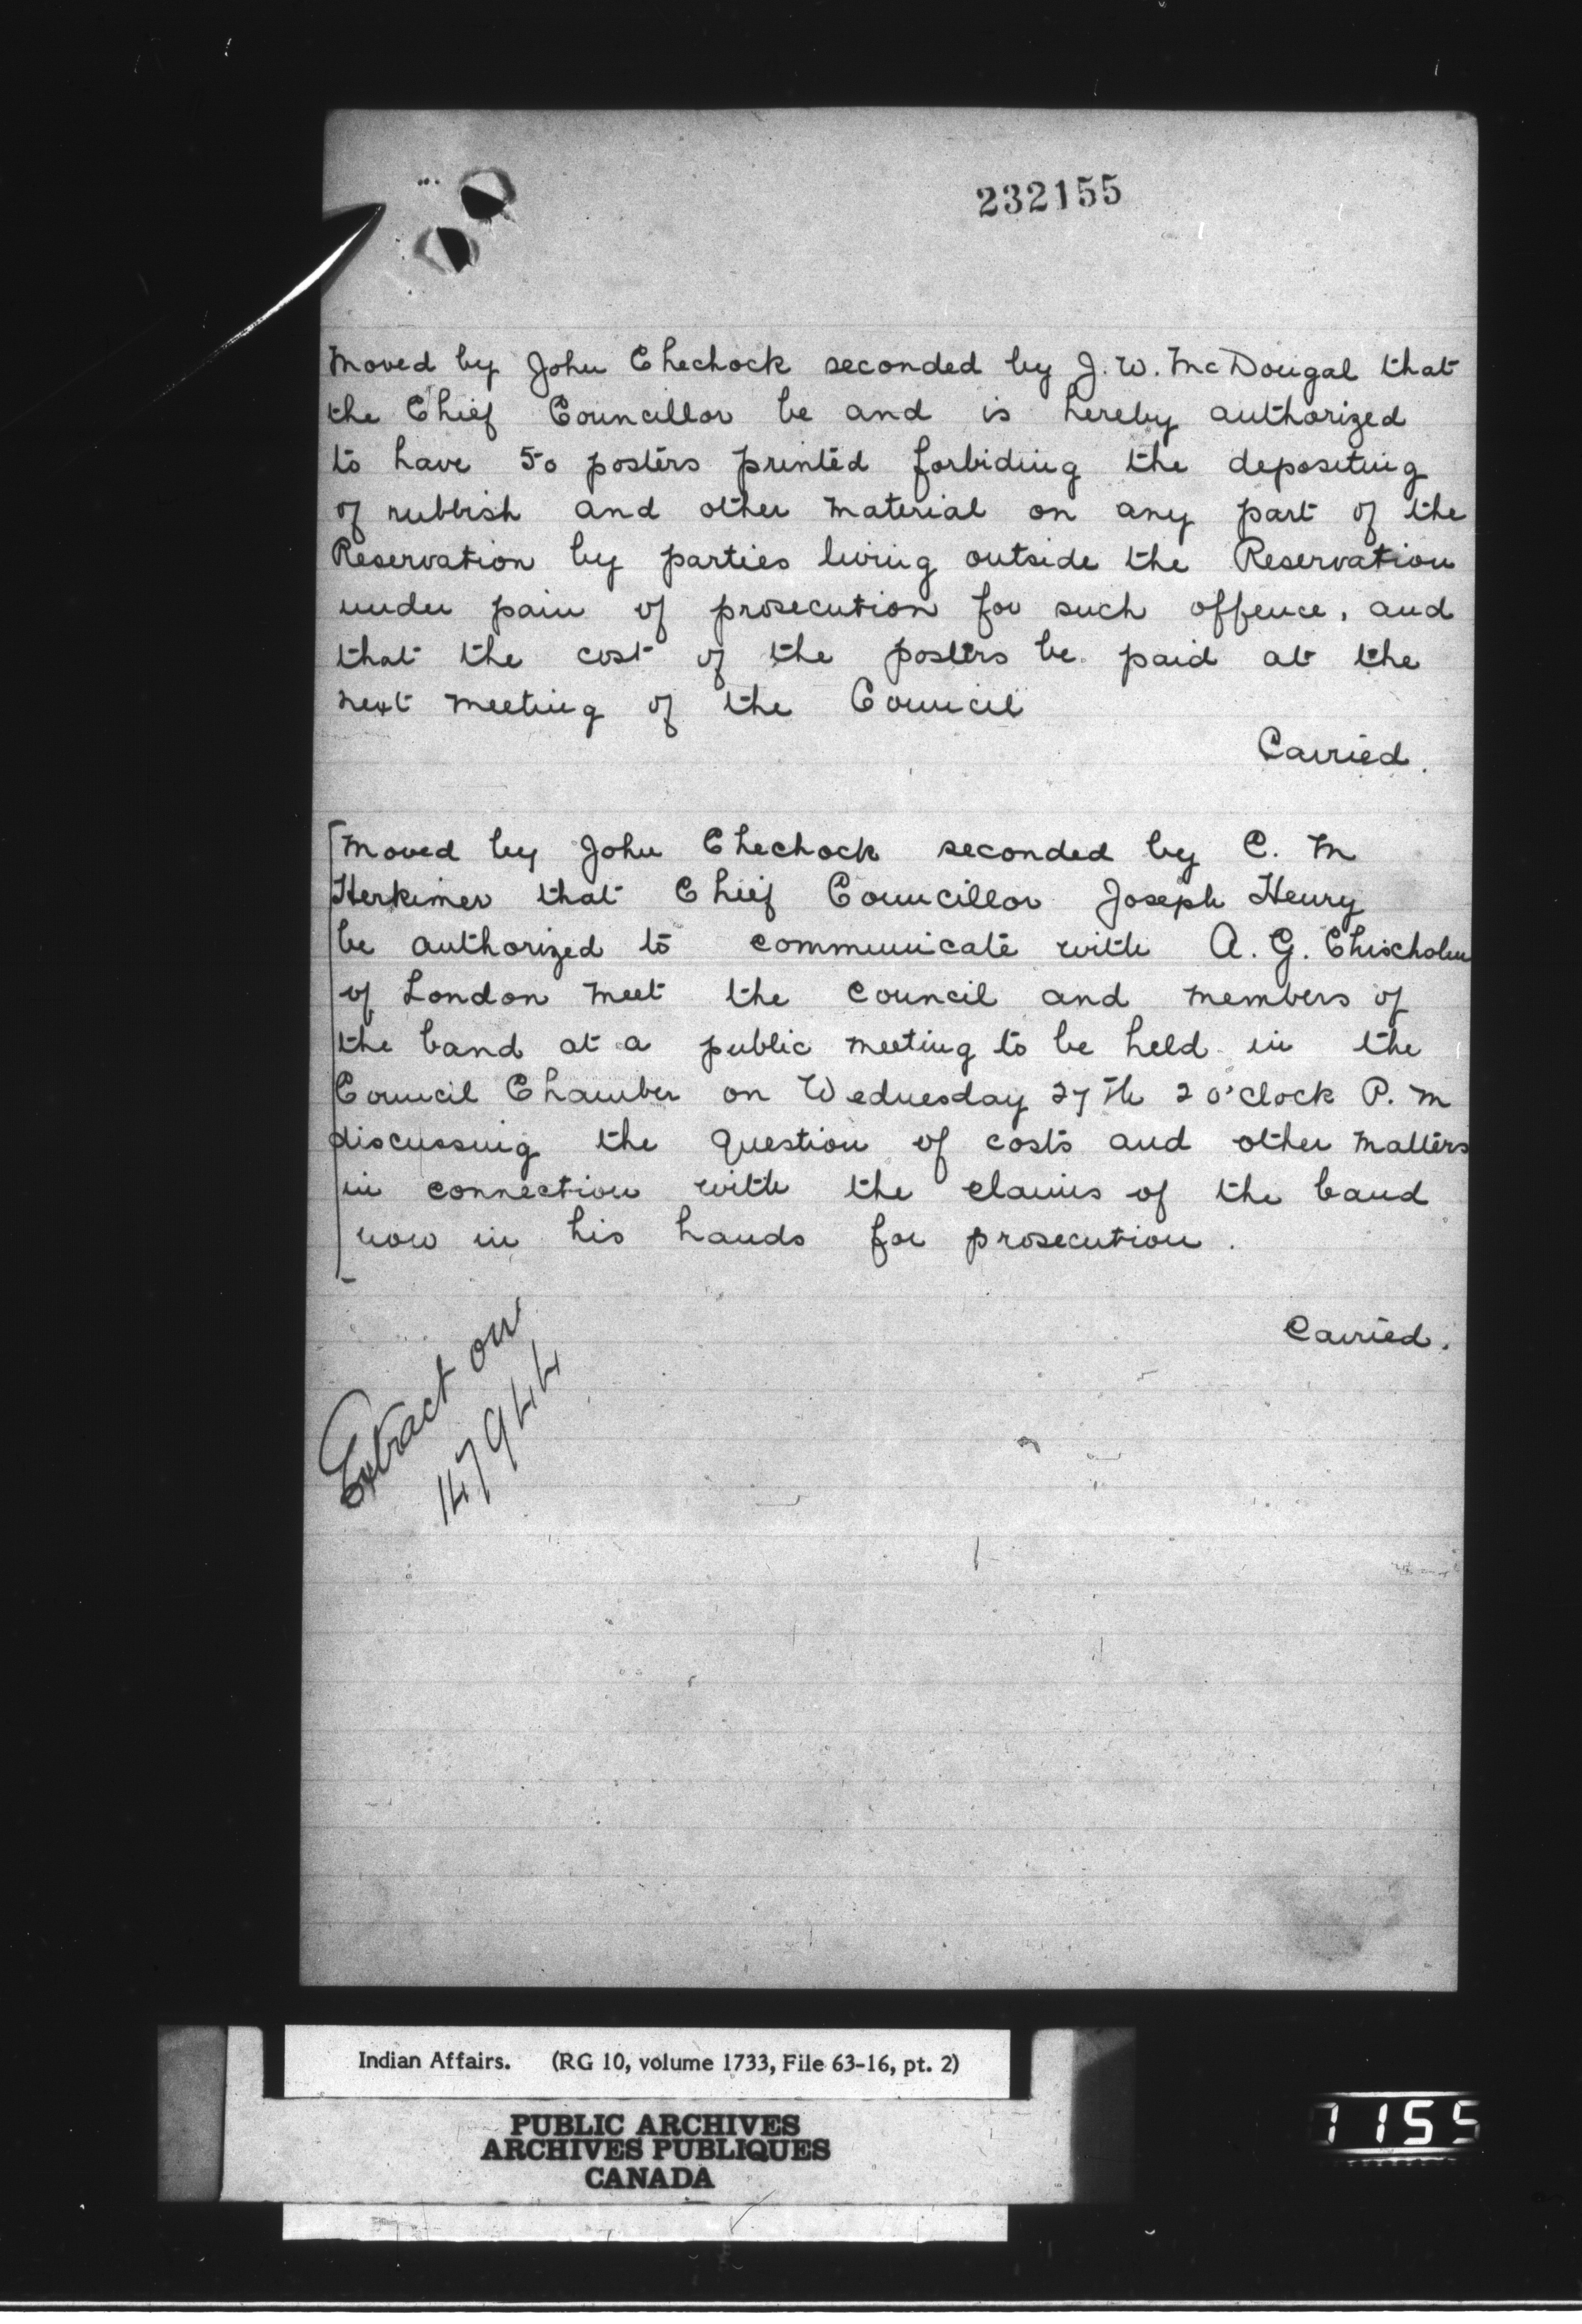 232155
Moved by John Chechock seconded by J. W. McDougal that
the Chief Councillor be and is hereby authorized
to have 50 posters printed forbiding the depositing
of rubbish and other material on any part of the
Reservation by parties living outside the Reservation
under pain of prosecution for such offence, and
that the cost of the posters be paid at the
next meeting of the Council
Carried.
Moved by John Chechock seconded by C. M
Herkimer that Chief Councillor Joseph Henry
be authorized to communicate with A. G. Chischolm
of London meet the council and members of
the band at a public meeting to be held in the
Council Chamber on Wednesday 27th 2 o'clock P. M
discussing the question of costs and other matters
in connection with the claims of the band
now in his hands for prosecution.
Carried.
Extract on
147944
Indian Affairs. (RG 10, volume 1733, File 63-16, pt. 2)
PUBLIC ARCHIVES
ARCHIVES PUBLIQUES
CANADA
1155